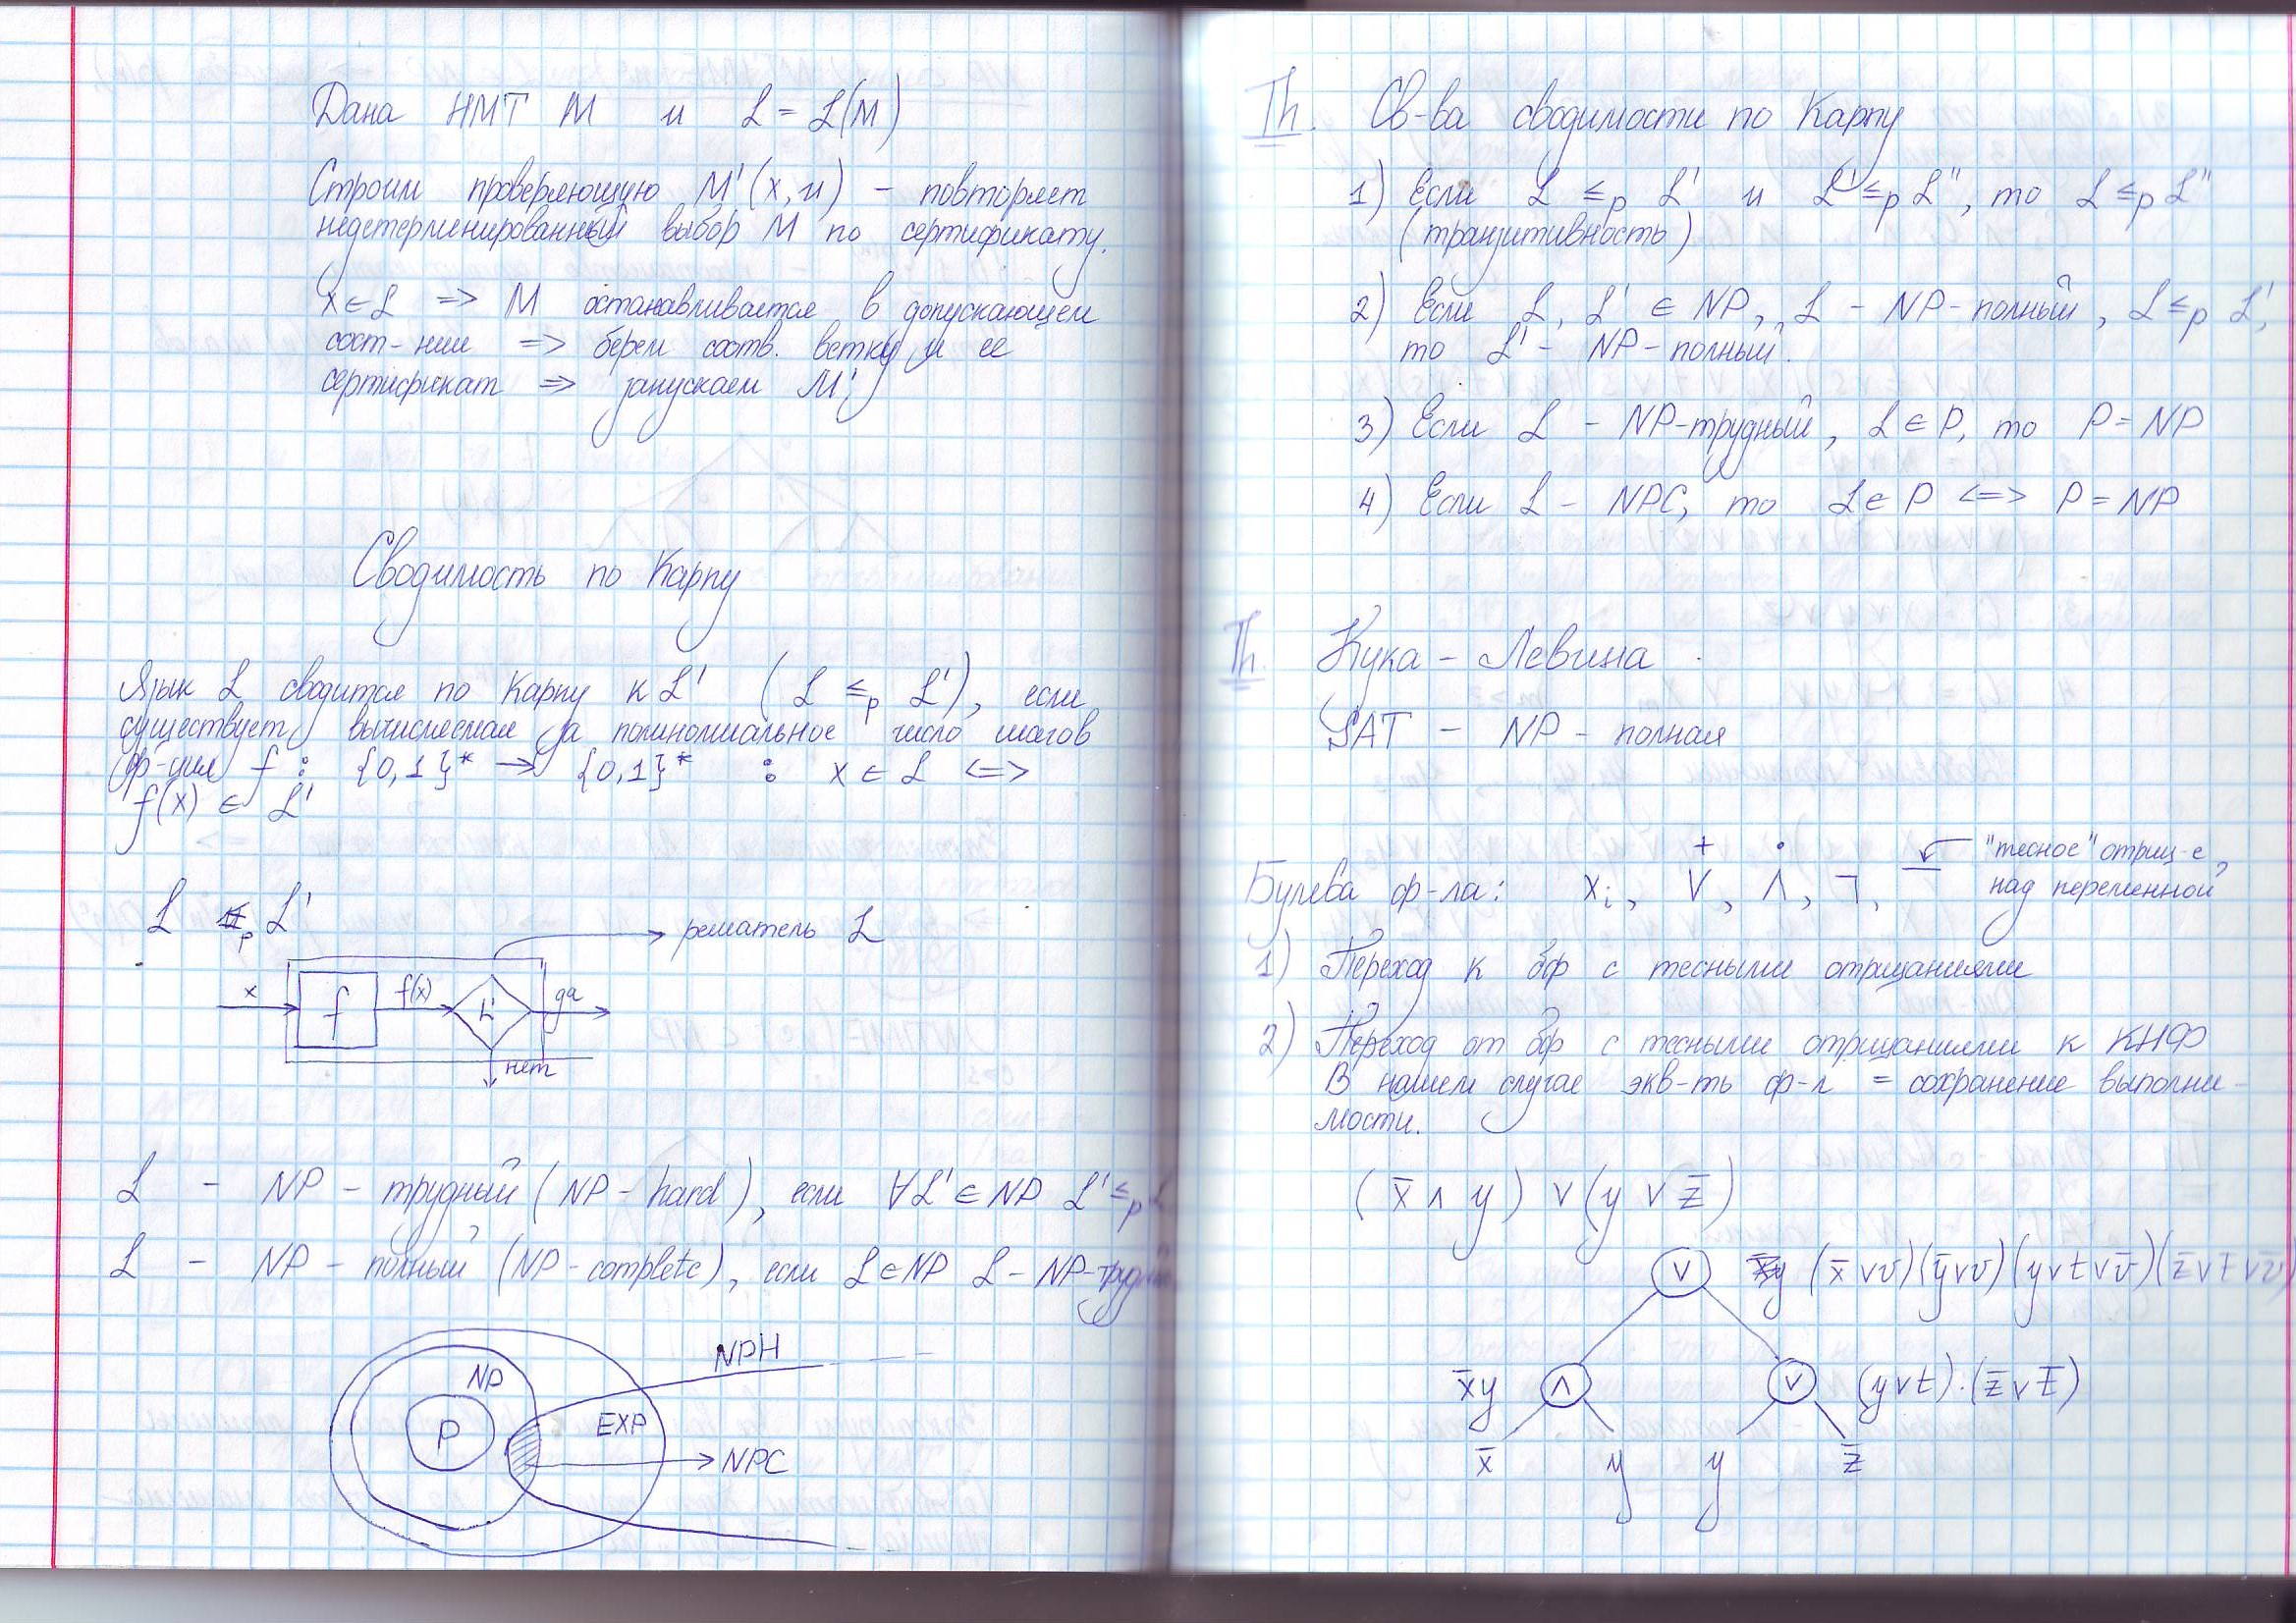 Дана НМТ M и L = L(M)
Строим проверяющую M'(x,u) - повторяет
недетерминированный выбор M по сертификату.
x ∈ L => M останавливается в допускающем
сост-нии => берем соотв. ветку и ее
сертификат => запускаем M'.
Сводимость по Карпу
Язык L сводится по Карпу к L' ( L ≤p L' ), если
существует вычислимая за полиномиальное число шагов
ф-ция f : {0,1}* → {0,1}* : x ∈ L <=>
f(x) ∈ L'
L ≤p L'
решатель L
x f f(x) L' да
нет
L - NP - трудный (NP - hard), если ∀L' ∈ NP L' ≤p L
L - NP - полный (NP - complete), если L ∈ NP L - NP-трудный
NPH
NP
P EXP
NPC
Th. Св-ва сводимости по Карпу
1) Если L ≤p L' и L' ≤p L", то L ≤p L"
(транзитивность)
2) Если L, L' ∈ NP, L - NP-полный, L ≤p L',
то L' - NP-полный.
3) Если L - NP-трудный, L ∈ P, то P = NP
4) Если L - NPC, то L ∈ P <=> P = NP
Th. Кука - Левина
SAT - NP - полная
+ · "тесное" отриц-е,
Булева ф-ла: xi, ∨, ∧, ¬, ‾ над переменной
1) Переход к бф с тесными отрицаниями
2) Переход от бф с тесными отрицаниями к КНФ
В нашем случае экв-ть ф-л = сохранение выполни-
мости.
(x̄ ∧ y) ∨ (y ∨ z̄)
∨ (x̄ ∨ v)(ȳ ∨ v)(y ∨ t ∨ v̄)(z̄ ∨ t̄ ∨ v̄)
x̄y ∧ ∨ (y ∨ t)·(z̄ ∨ t̄)
x̄ y y z̄